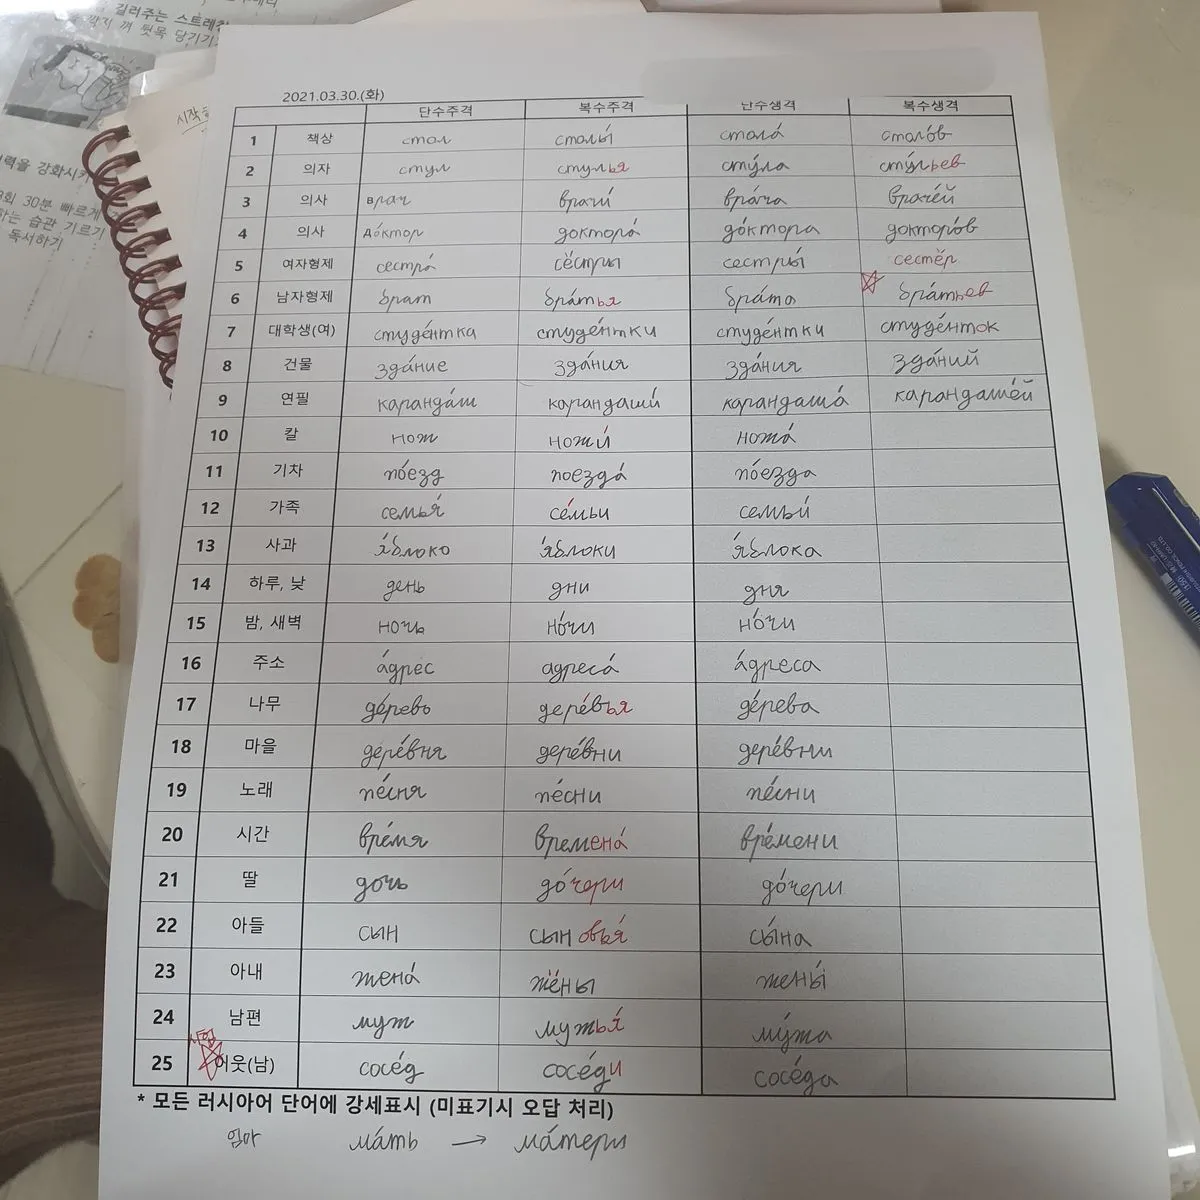 길러주는 스트레칭
뒷목 당기기
력을 강화시키
회 30분 빠르게
하는 습관 기르기
독서하기
2021.03.30.(화)
단수주격 복수주격 단수생격 복수생격
1 책상 стол столы́ стола́ столо́в
2 의자 стул сту́лья сту́ла сту́льев
3 의사 врач врачи́ врача́ враче́й
4 의사 до́ктор доктора́ до́ктора докторо́в
5 여자형제 сестра́ сёстры сестры́ сестёр
6 남자형제 брат бра́тья бра́та бра́тьев
7 대학생(여) студе́нтка студе́нтки студе́нтки студе́нток
8 건물 зда́ние зда́ния зда́ния зда́ний
9 연필 каранда́ш карандаши́ карандаша́ карандаше́й
10 칼 нож ножи́ ножа́
11 기차 по́езд поезда́ по́езда
12 가족 семья́ се́мьи семьи́
13 사과 я́блоко я́блоки я́блока
14 하루, 낮 день дни дня
15 밤, 새벽 ночь но́чи но́чи
16 주소 а́дрес адреса́ а́дреса
17 나무 де́рево дере́вья де́рева
18 마을 дере́вня дере́вни дере́вни
19 노래 пе́сня пе́сни пе́сни
20 시간 вре́мя времена́ вре́мени
21 딸 дочь до́чери до́чери
22 아들 сын сыновья́ сы́на
23 아내 жена́ жёны жены́
24 남편 муж мужья́ му́жа
25 이웃(남) сосе́д сосе́ди сосе́да
시험
* 모든 러시아어 단어에 강세표시 (미표기시 오답 처리)
엄마 ма́ть → ма́тери